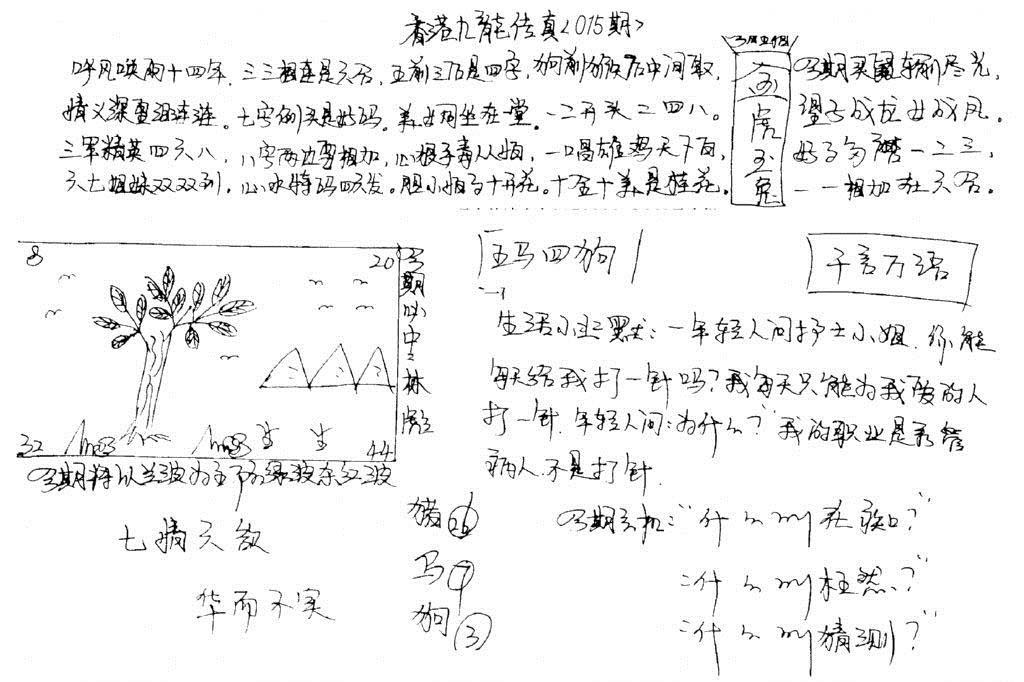 香港九龍传真<015期>
呼风唤雨十四年,三三相连是六合,五前三后是四字,狗前猴后中间取,
情义深重泪连连。七字倒头是好码。美女同坐在一堂。一二开头二四八。
三军精英四六八,八字两边要相加,心狠手毒从娘,一唱雄鸡天下白,
六七姐妹双双到,心水特码四六发。胆小怕事十开花。十全十美是桂花。
虎
兔
本期买鼠输尽光,
望子成龙女成凤。
一二三,
一一相加在六合。
8
20
32
44
本期必中
林
五马四狗
千言万语
生活小幽默:一年轻人问护士小姐,你能
每天给我打一针吗?我每天只能为我爱的人
打一针,年轻人问:为什么?我的职业是看管
病人,不是打针.
本期特以兰波为主下防绿波杀红波
七情六欲
华而不实
猪 26
马 7
狗 3
本期玄机:"什么叫在?"
"什么叫枉然?"
"什么叫猜测?"